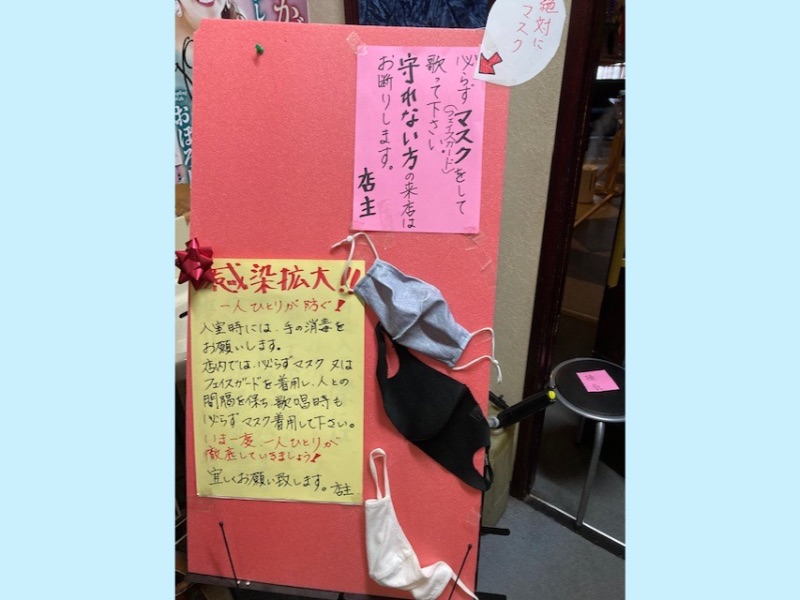 絶対に
マスク
必らずマスクをして
(フェイスガード)
歌って下さい
守れない方の来店は
お断りします。
店主
感染拡大!!
一人ひとりが防ぐ!
入室時には、手の消毒を
お願いします。
店内では、必らずマスク又は
フェイスガードを着用し、人との
間隔を保ち、歌唱時も
必らずマスク着用して下さい。
いま一度、一人ひとりが
徹底していきましょう!
宜しくお願い致します。店主